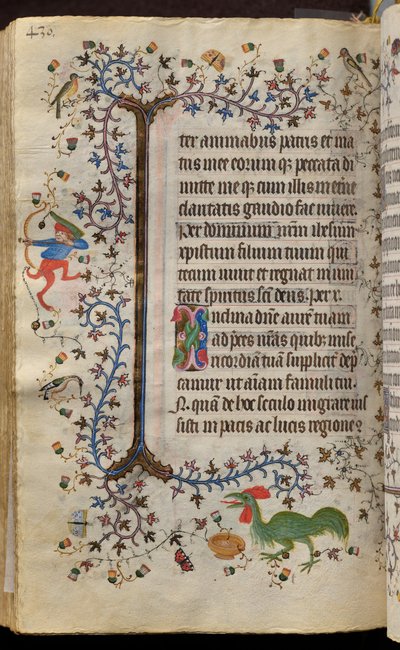 430.
ter animabus patris et ma
tris mee eorum q; peccata di
mitte me q; cum illis in eterne
claritatis gaudio fac vivere.
Per dominum nrm ihesum
xpistum filium tuum qui
tecum vivit et regnat in uni
tate spiritus sci deus. Per x.
Inclina dne aurem tuam
ad pces nras quib; mise
ricordiam tuā supplices dep
camur ut aiam famuli tui.
N. quam de hoc seculo migrare ius
sisti in pacis ac lucis regione